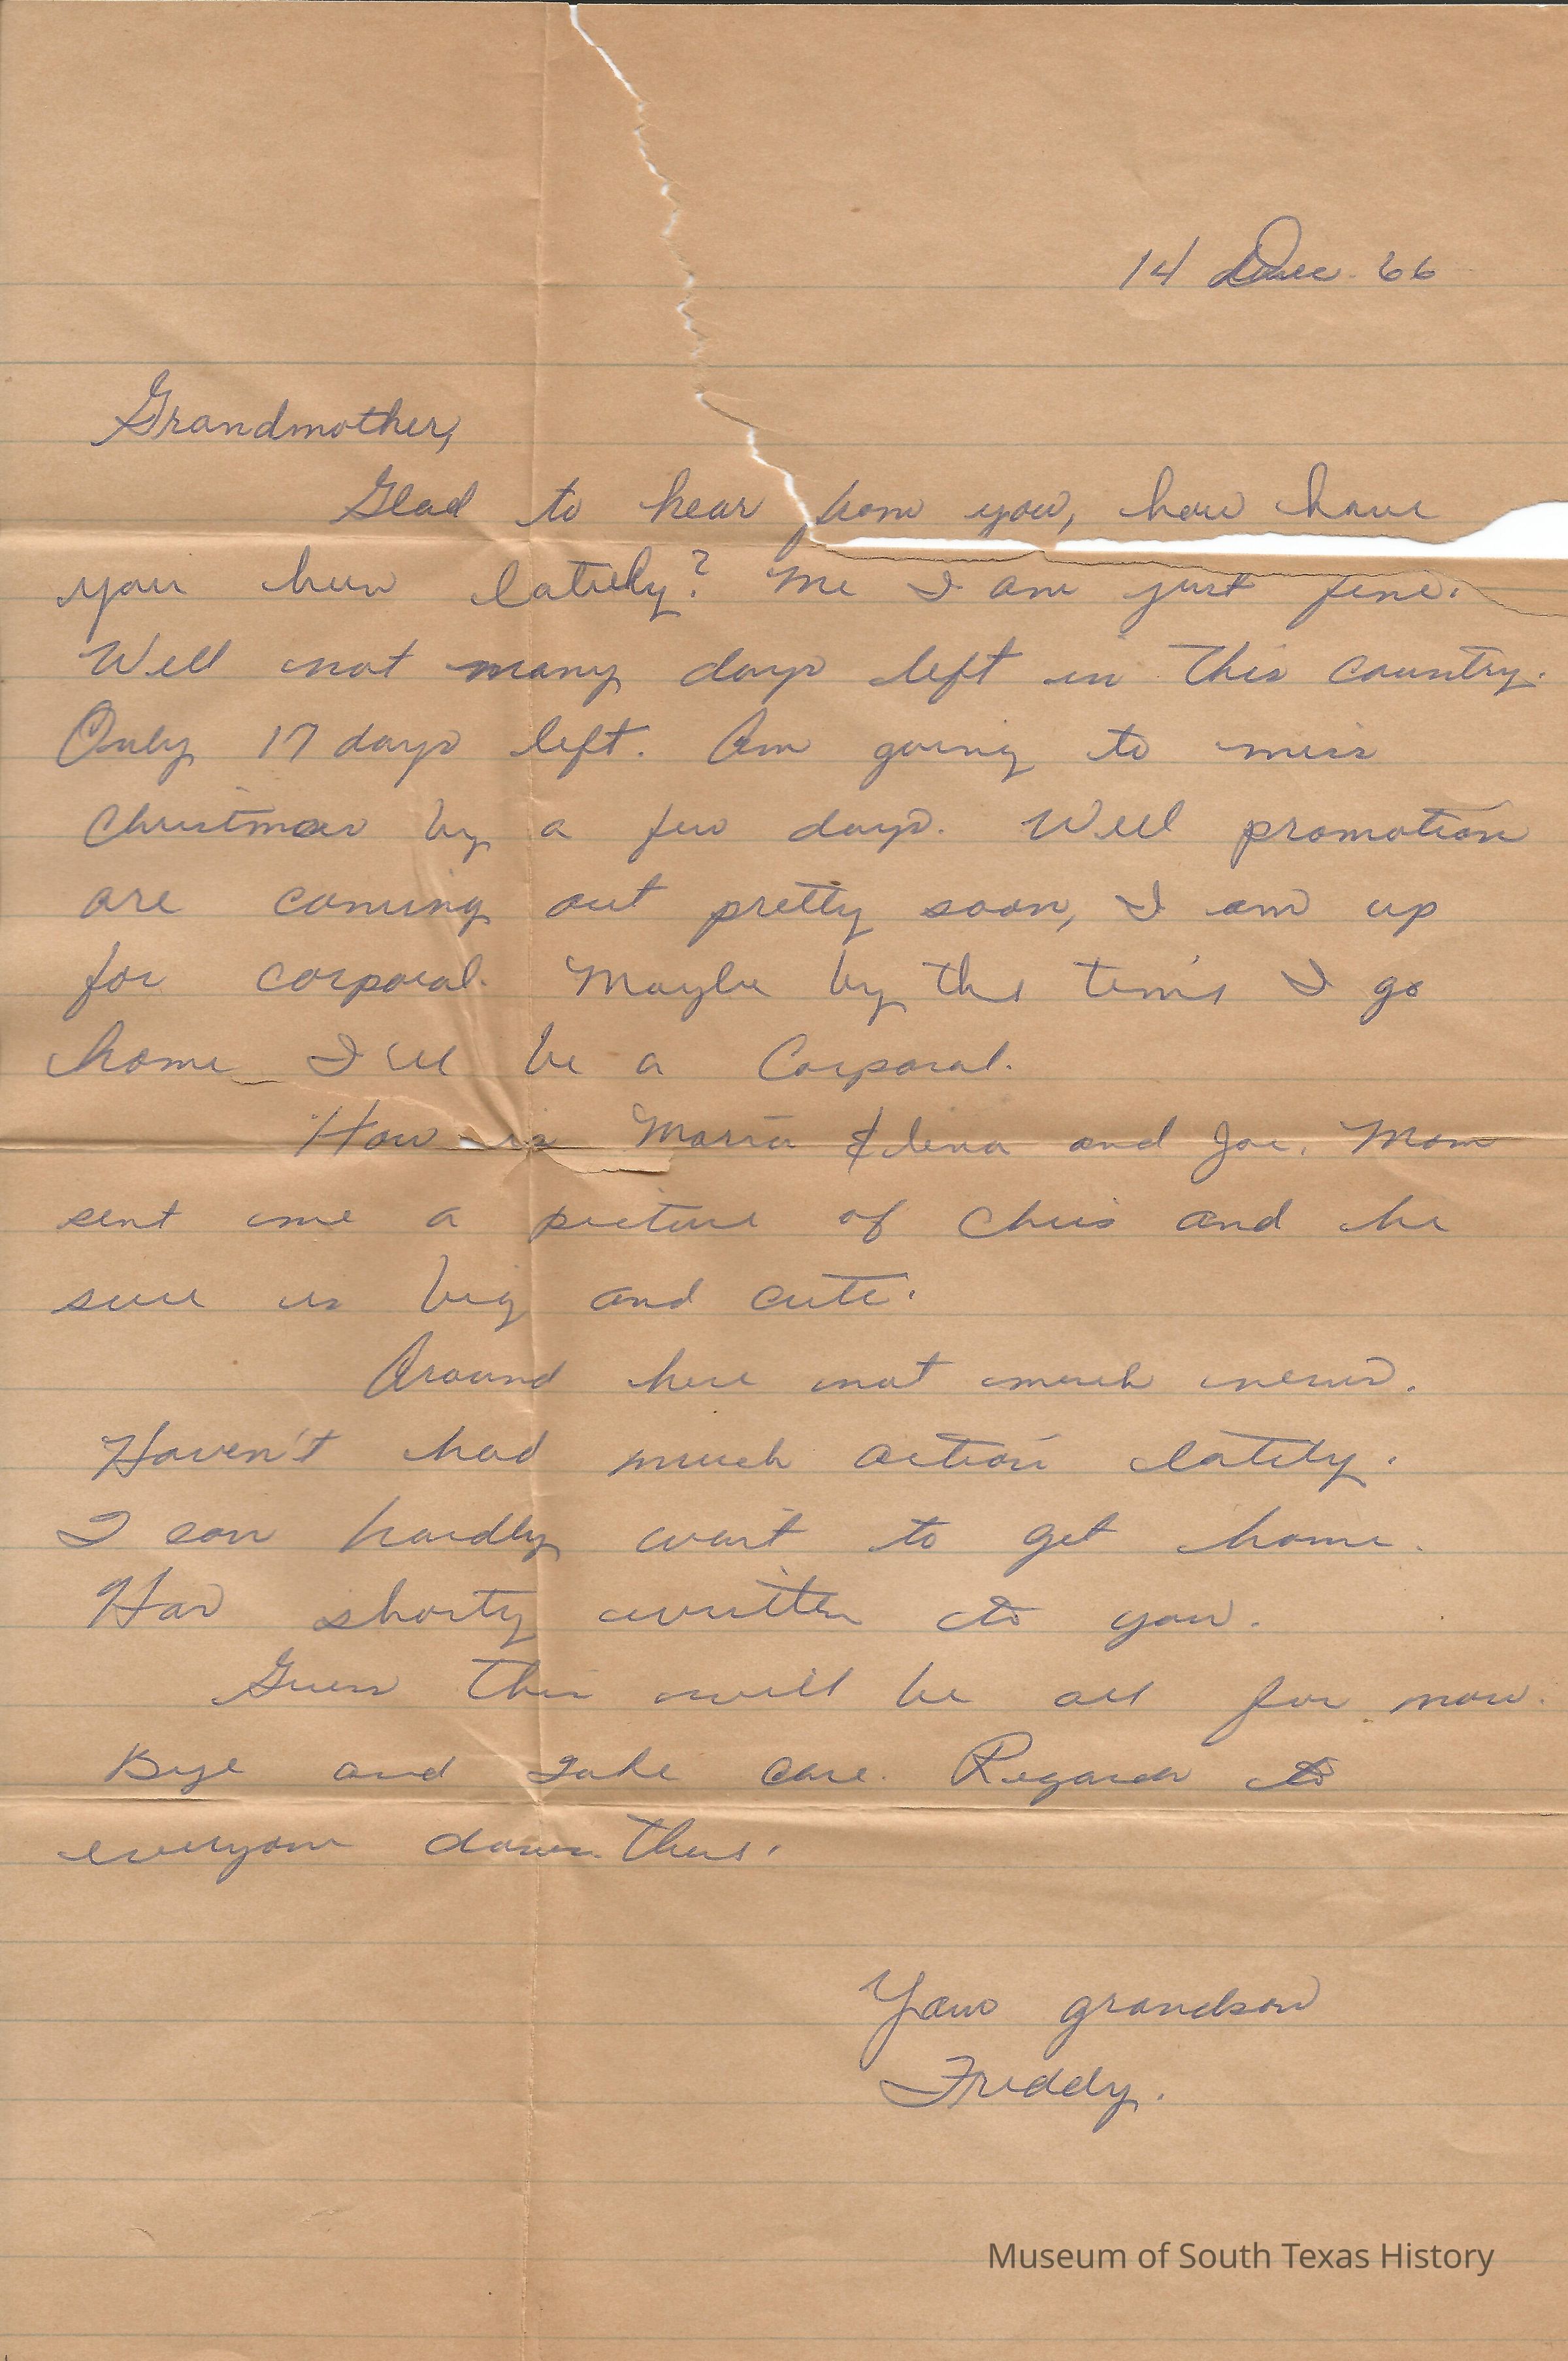 14 Dec. 66
Grandmother,
Glad to hear from you, how have
you been lately? Me I am just fine.
Well not many days left in this country.
Only 17 days left. Am going to miss
Christmas by a few days. Well promotion
are coming out pretty soon, I am up
for corporal. Maybe by the time I go
home I'll be a Corporal.
How is Maria Elena and Joe. Mom
sent me a picture of Chris and he
sure is big and cute.
Around here not much news.
Haven't had much action lately.
I can hardly wait to get home.
Has shorty written to you.
Guess this will be all for now.
Bye and take care. Regards to
everyone down there.
Your grandson
Freddy.
Museum of South Texas History